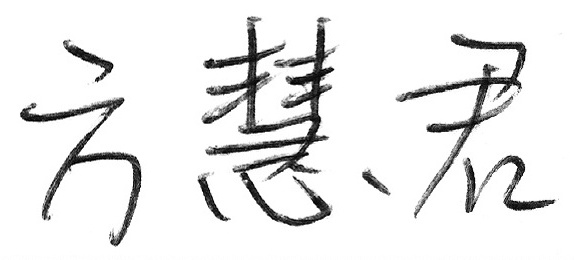 方慧君